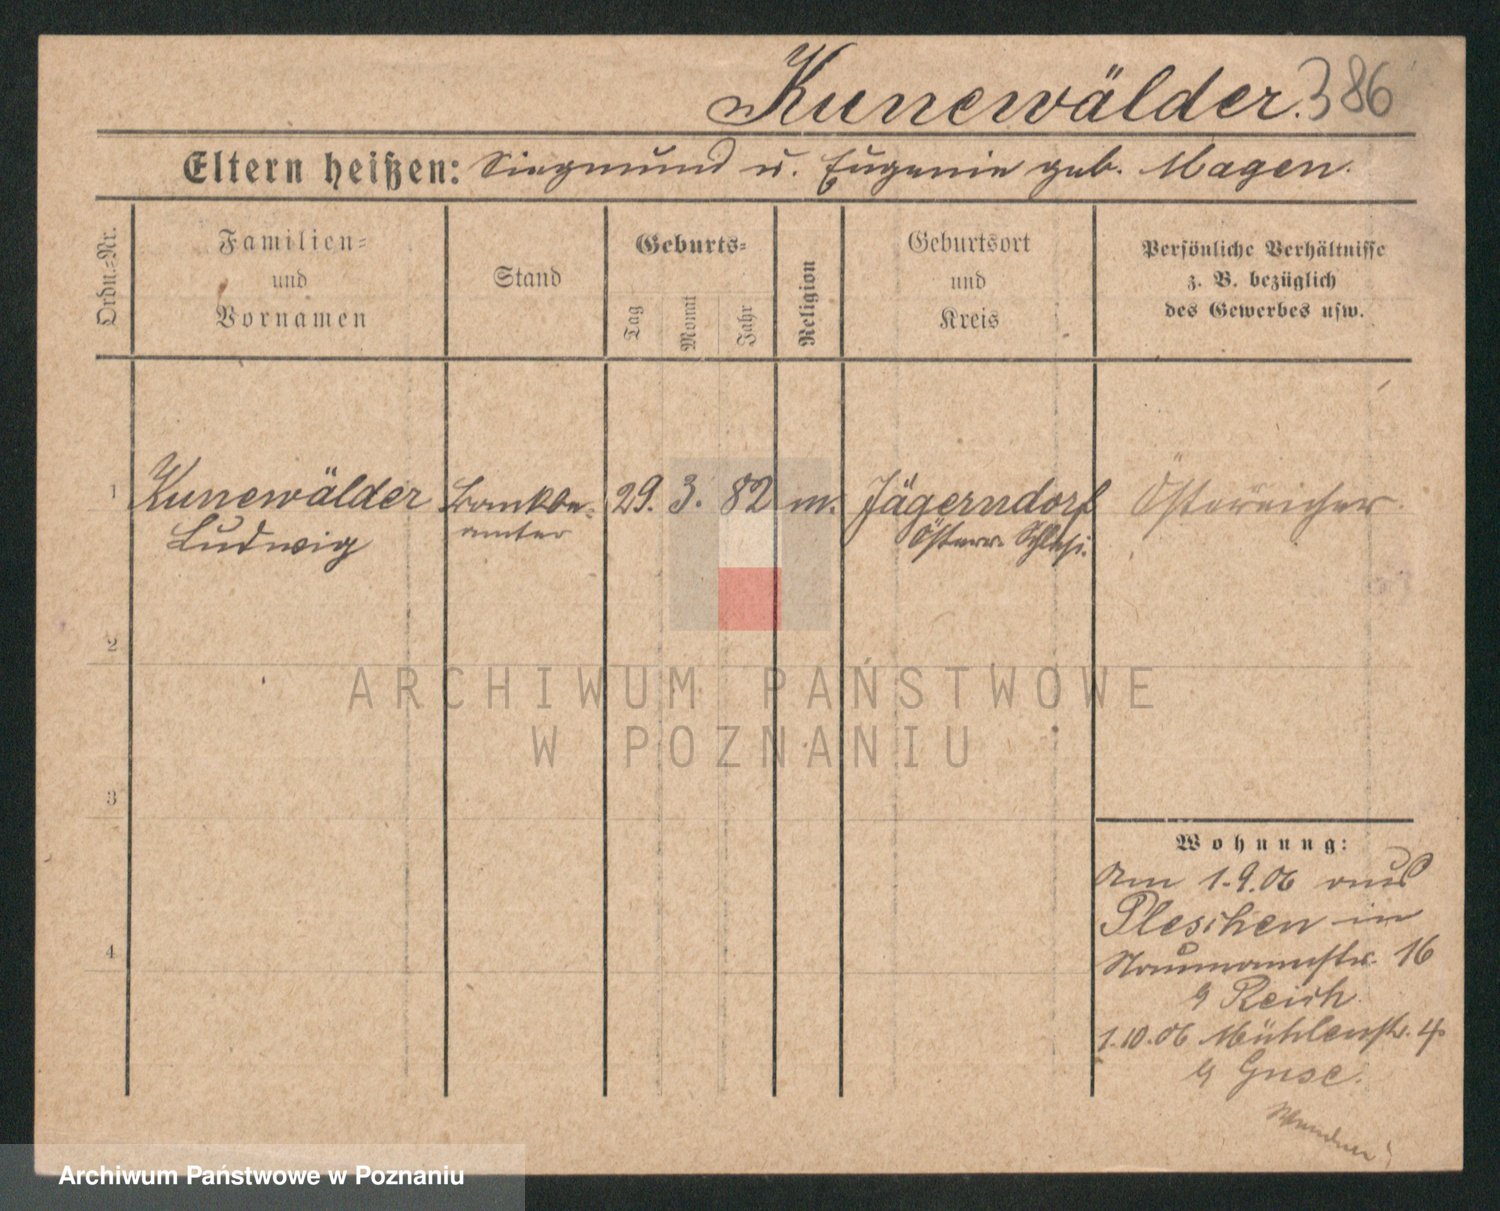 Kunewälder. 386
Eltern heißen: Siegmund u. Eugenie geb. Magen.
Ordn.=Nr.
Familien=
und
Vornamen
Stand
Geburts=
Tag
Monat
Jahr
Religion
Geburtsort
und
Kreis
Persönliche Verhältnisse
z. B. bezüglich
des Gewerbes usw.
1 Kunewälder Bankbe= 29. 3. 82 m. Jägerndorf Östereicher.
Ludwig amter Österr. Schlesi.
2
3
4
Wohnung:
Am 1.9.06 aus
Pleschen in
Naumannstr. 16
b Reich
1.10.06 Mühlenstr. 4
b Guse.
ARCHIWUM PAŃSTWOWE
W POZNANIU
Archiwum Państwowe w Poznaniu